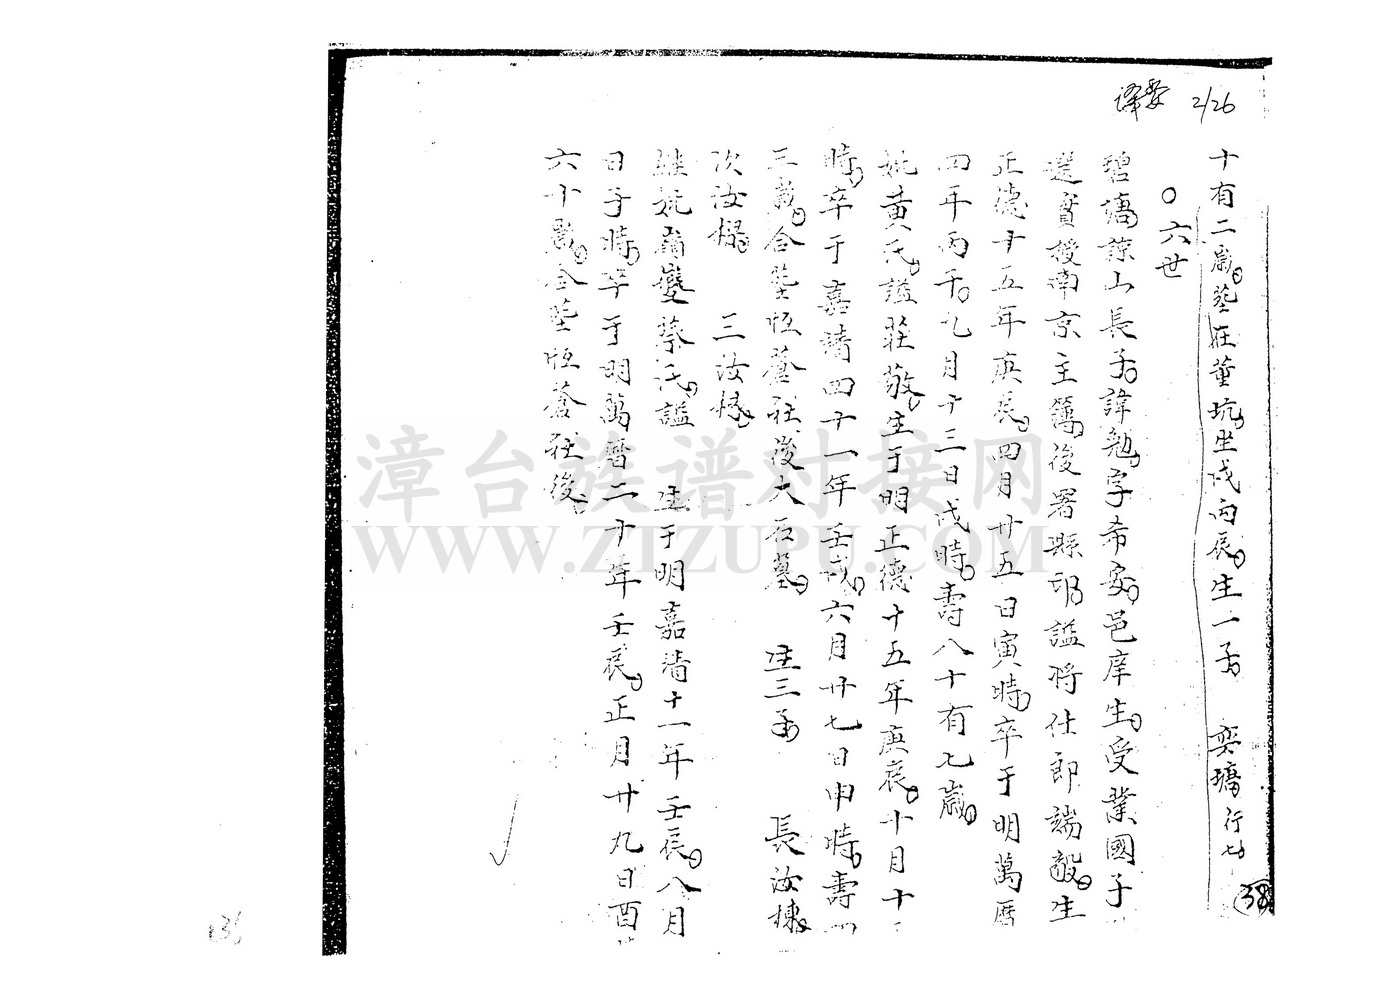 2/26
十有二歲葬在董坑坐戌丙辰生一子 奕墉行七
38
○六世
碧潭諒山長子諱勉字希安邑庠生受業國子
選實授南京主簿後署縣印謚將仕郎端毅生
正德十五年庚辰四月廿五日寅時卒于明萬曆
四年丙子九月十三日戌時壽八十有七歲
妣黃氏謚莊敬生于明正德十五年庚辰十月十
時卒于嘉靖四十一年壬戌六月廿七日申時壽四
三歲合塟恒蒼社後大石墓 生三子 長汝棟
次汝 三汝
繼妣 蔡氏謚 生于明嘉靖十一年壬辰八月
日子時卒于明萬曆二十年壬辰正月廿九日酉
六十歲合塟恒蒼社後
136
漳台族谱对接网
WWW.ZIZUPU.COM